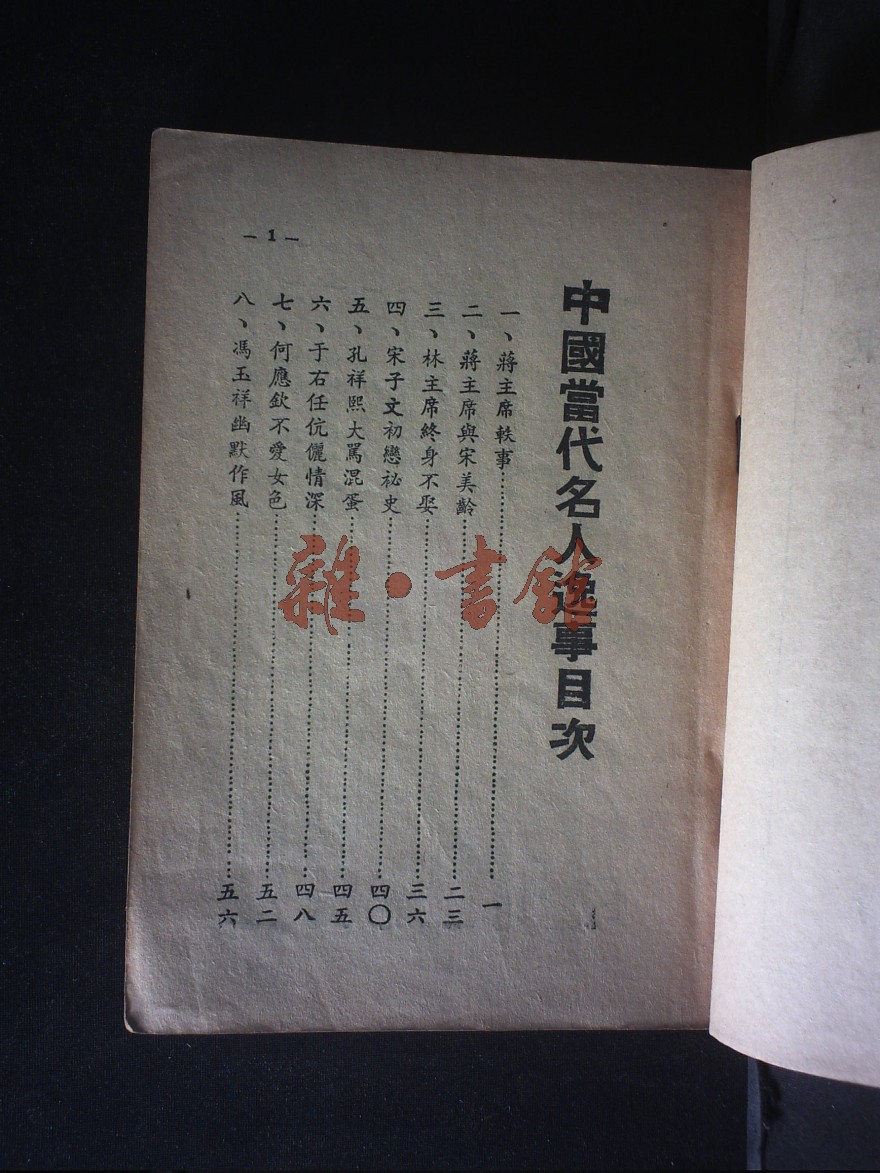 中國當代名人逸事目次
一、蔣主席軼事…………一
二、蔣主席與宋美齡…………二三
三、林主席終身不娶…………三六
四、宋子文初戀祕史…………四〇
五、孔祥熙大罵混蛋…………四五
六、于右任伉儷情深…………四八
七、何應欽不愛女色…………五二
八、馮玉祥幽默作風…………五六
— 1 —
雜·書館